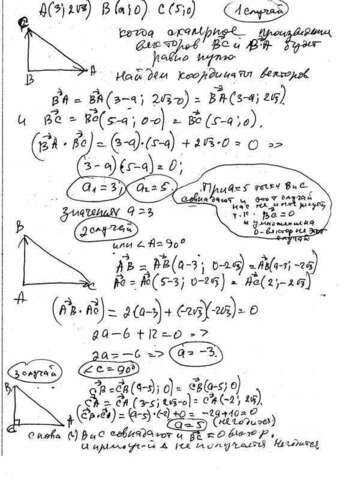 A(3; 2√3) B(a; 0) C(5; 0) 1 случай
когда скалярное произведен
векторов BC и BA будет
равно нулю
Найдем координаты векторов
BA = BA(3-a; 2√3-0) = BA(3-a; 2√3).
и BC = BC(5-a; 0-0) = BC(5-a; 0).
(BA · BC) = (3-a)·(5-a) + 2√3·0 = 0 =>
(3-a)(5-a) = 0;
a₁ = 3; a₂ = 5.
При a=5 точки B и C
совпадают и этот случай
нас не
т.к. BC = 0
0-вектор
случай
значения a = 3
2 случай
или ∠A = 90°
AB = AB(a-3; 0-2√3) = AB(a-3; -2√3)
AC = AC(5-3; 0-2√3) = AC(2; -2√3)
(AB · AC) = 2(a-3) + (-2√3)(-2√3) = 0
2a - 6 + 12 = 0 =>
2a = -6 => a = -3.
3 случай
∠C = 90°
CB = CB(a-5; 0) = CB(a-5; 0)
CA = CA(3-5; 2√3-0) = CA(-2; 2√3).
(CB·CA) = (a-5)·(-2) + 0 = -2a + 10 = 0
a = 5 (не годится)
снова B и C совпадают и BC = 0 вектор.
и Δ не получается Негодится